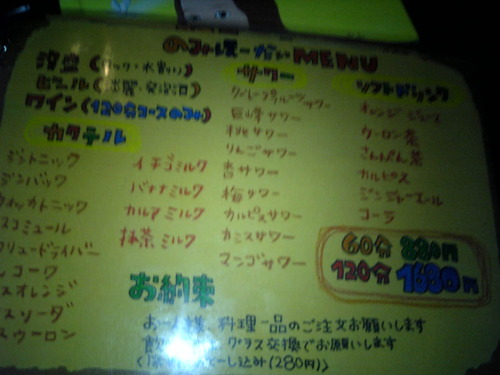 のみほーだいMENU
泡盛(ロック・水割り)
ビール(淡麗・発泡酒)
ワイン(120分コースのみ)
カクテル
ジントニック
ジンバック
ウォッカトニック
モスコミュール
スクリュードライバー
コーク
カシスオレンジ
カシスソーダ
カシスウーロン
イチゴミルク
バナナミルク
カルアミルク
抹茶ミルク
サワー
グレープフルーツサワー
巨峰サワー
桃サワー
りんごサワー
杏サワー
梅サワー
カルピスサワー
カシスサワー
マンゴサワー
ソフトドリンク
オレンジジュース
ウーロン茶
さんぴん茶
カルピス
ジンジャーエール
コーラ
60分 880円
120分 1680円
お約束
お一人様、料理一品のご注文お願いします
グラス交換でお願いします
込み(280円)